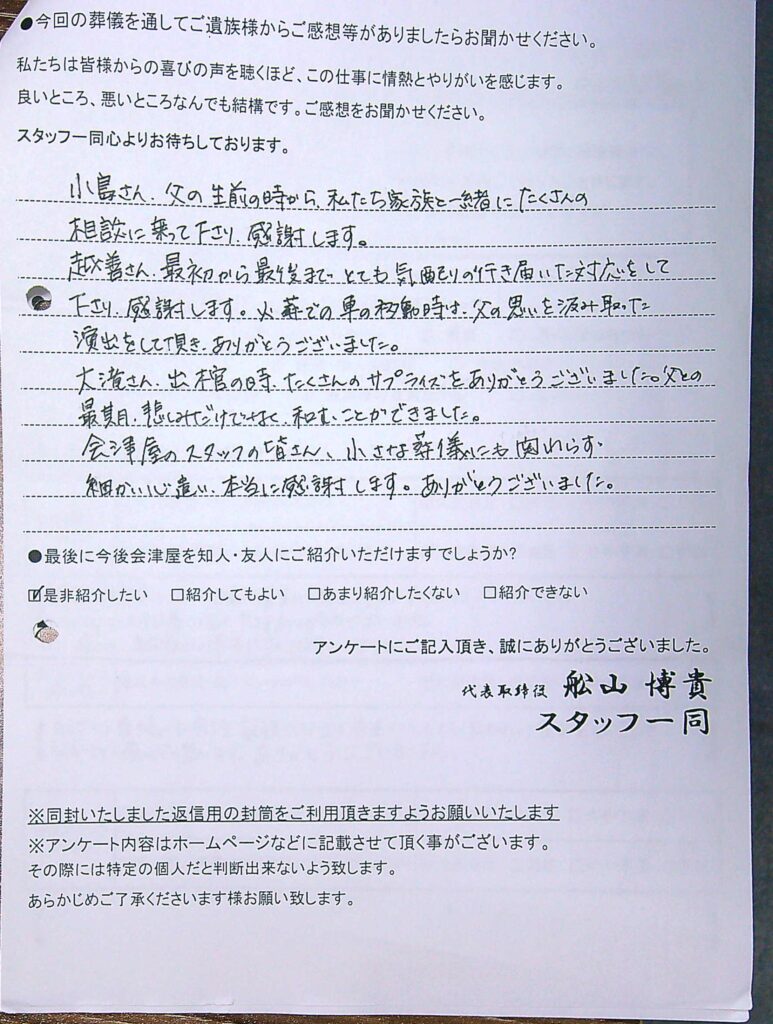 ●今回の葬儀を通してご遺族様からご感想等がありましたらお聞かせください。
私たちは皆様からの喜びの声を聴くほど、この仕事に情熱とやりがいを感じます。
良いところ、悪いところなんでも結構です。ご感想をお聞かせください。
スタッフ一同心よりお待ちしております。
小島さん、父の生前の時から、私たち家族と一緒にたくさんの
相談に乗って下さり、感謝します。
越善さん、最初から最後まで、とても気配りの行き届いた対応をして
下さり、感謝します。火葬での車の移動時は、父の思いを汲み取った
演出をして頂き、ありがとうございました。
大滝さん、出棺の時、たくさんのサプライズをありがとうございました。父との
最期、悲しみだけでなく、和むことができました。
会津屋のスタッフの皆さん、小さな葬儀にも関わらず、
細かい心遣い、本当に感謝します。ありがとうございました。
●最後に今後会津屋を知人・友人にご紹介いただけますでしょうか?
☑是非紹介したい □紹介してもよい □あまり紹介したくない □紹介できない
アンケートにご記入頂き、誠にありがとうございました。
代表取締役 舩山 博貴
スタッフ一同
※同封いたしました返信用の封筒をご利用頂きますようお願いいたします
※アンケート内容はホームページなどに記載させて頂く事がございます。
その際には特定の個人だと判断出来ないよう致します。
あらかじめご了承くださいます様お願い致します。